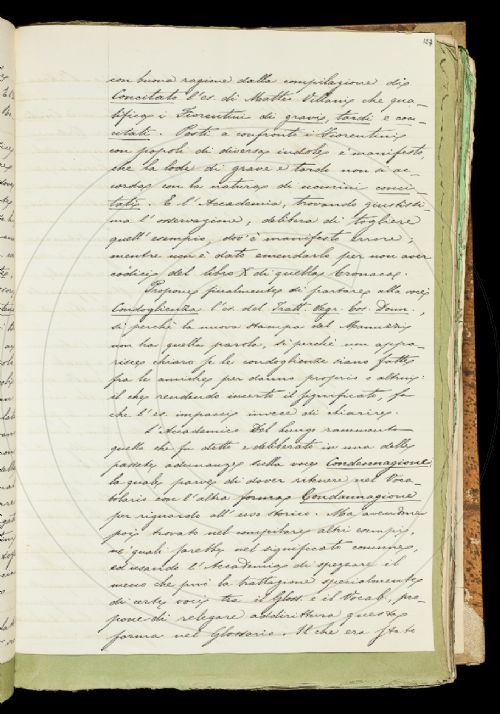 127
con buona ragione dalla compilazione di
Concitato l'es. di Matteo Villani che qua-
lifica i Fiorentini di gravi, tardi e con-
citati. Posti a confronto i Fiorentini
con popoli di diversa indole è manifesto,
che la lode di grave e tardo non si ac-
corda con la natura di uomini conci-
tati. E l'Accademia, trovando giustissi-
ma l'osservazione, delibera di togliere
quell'esempio, dov'è manifesto errore,
mentre non è dato emendarlo per non aver
codici del libro X di quella Cronaca.
Propone finalmente di portare alla voce
Condoglienza l'es. del Tratt. Segr. cos. Donn.,
sì perchè la nuova stampa del Manuzzi
non ha quella parola, sì perchè non appa-
risce chiaro se le condoglienze siano fatte
fra le amiche per danno proprio o altrui:
il che rendendo incerto il significato, fa
che l'es. impacci invece di chiarire.
L'Accademico Del Lungo rammenta
quello che fu detto e deliberato in una delle
passate adunanze sulla voce Condennagione,
la quale parve di dover ritenere nel Voca-
bolario con l'altra forma Condannagione
per riguardo all'uso storico. Ma avendone
poi trovato nel compilare altri esempi,
ne' quali parette nel significato comune,
ed usando l'Accademia di spezzare il
meno che può la trattazione specialmente
di certe voci tra il Gloss. e il Vocab., pro-
pone di relegare addirittura questa
forma nel Glossario. Il che era stato